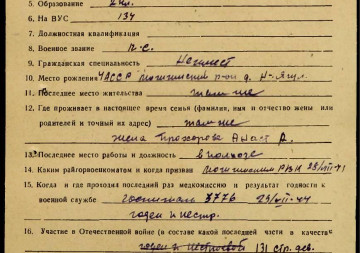 5. Образование 2 кл.
6. На ВУС 134
7. Должностная квалификация
8. Военное звание
9. Гражданская специальность
10. Место рождения ЧАССР р-он д.
11. Последнее место жительства там же
12. Где проживает в настоящее время семья (фамилия, имя и отчество жены или
родителей и точный их адрес) там же
жена Прохорова Анаст А.
13. Последнее место работы и должность в колхозе
14. Каким райгорвоенкоматом и когда призван РВК
15. Когда и где проходил последний раз медкомиссию и результат годности к
военной службе госпиталь 3776 23/VII-44
годен к нестр.
16. Участие в Отечественной войне (в составе какой последней части и в качестве
131 стр. див.